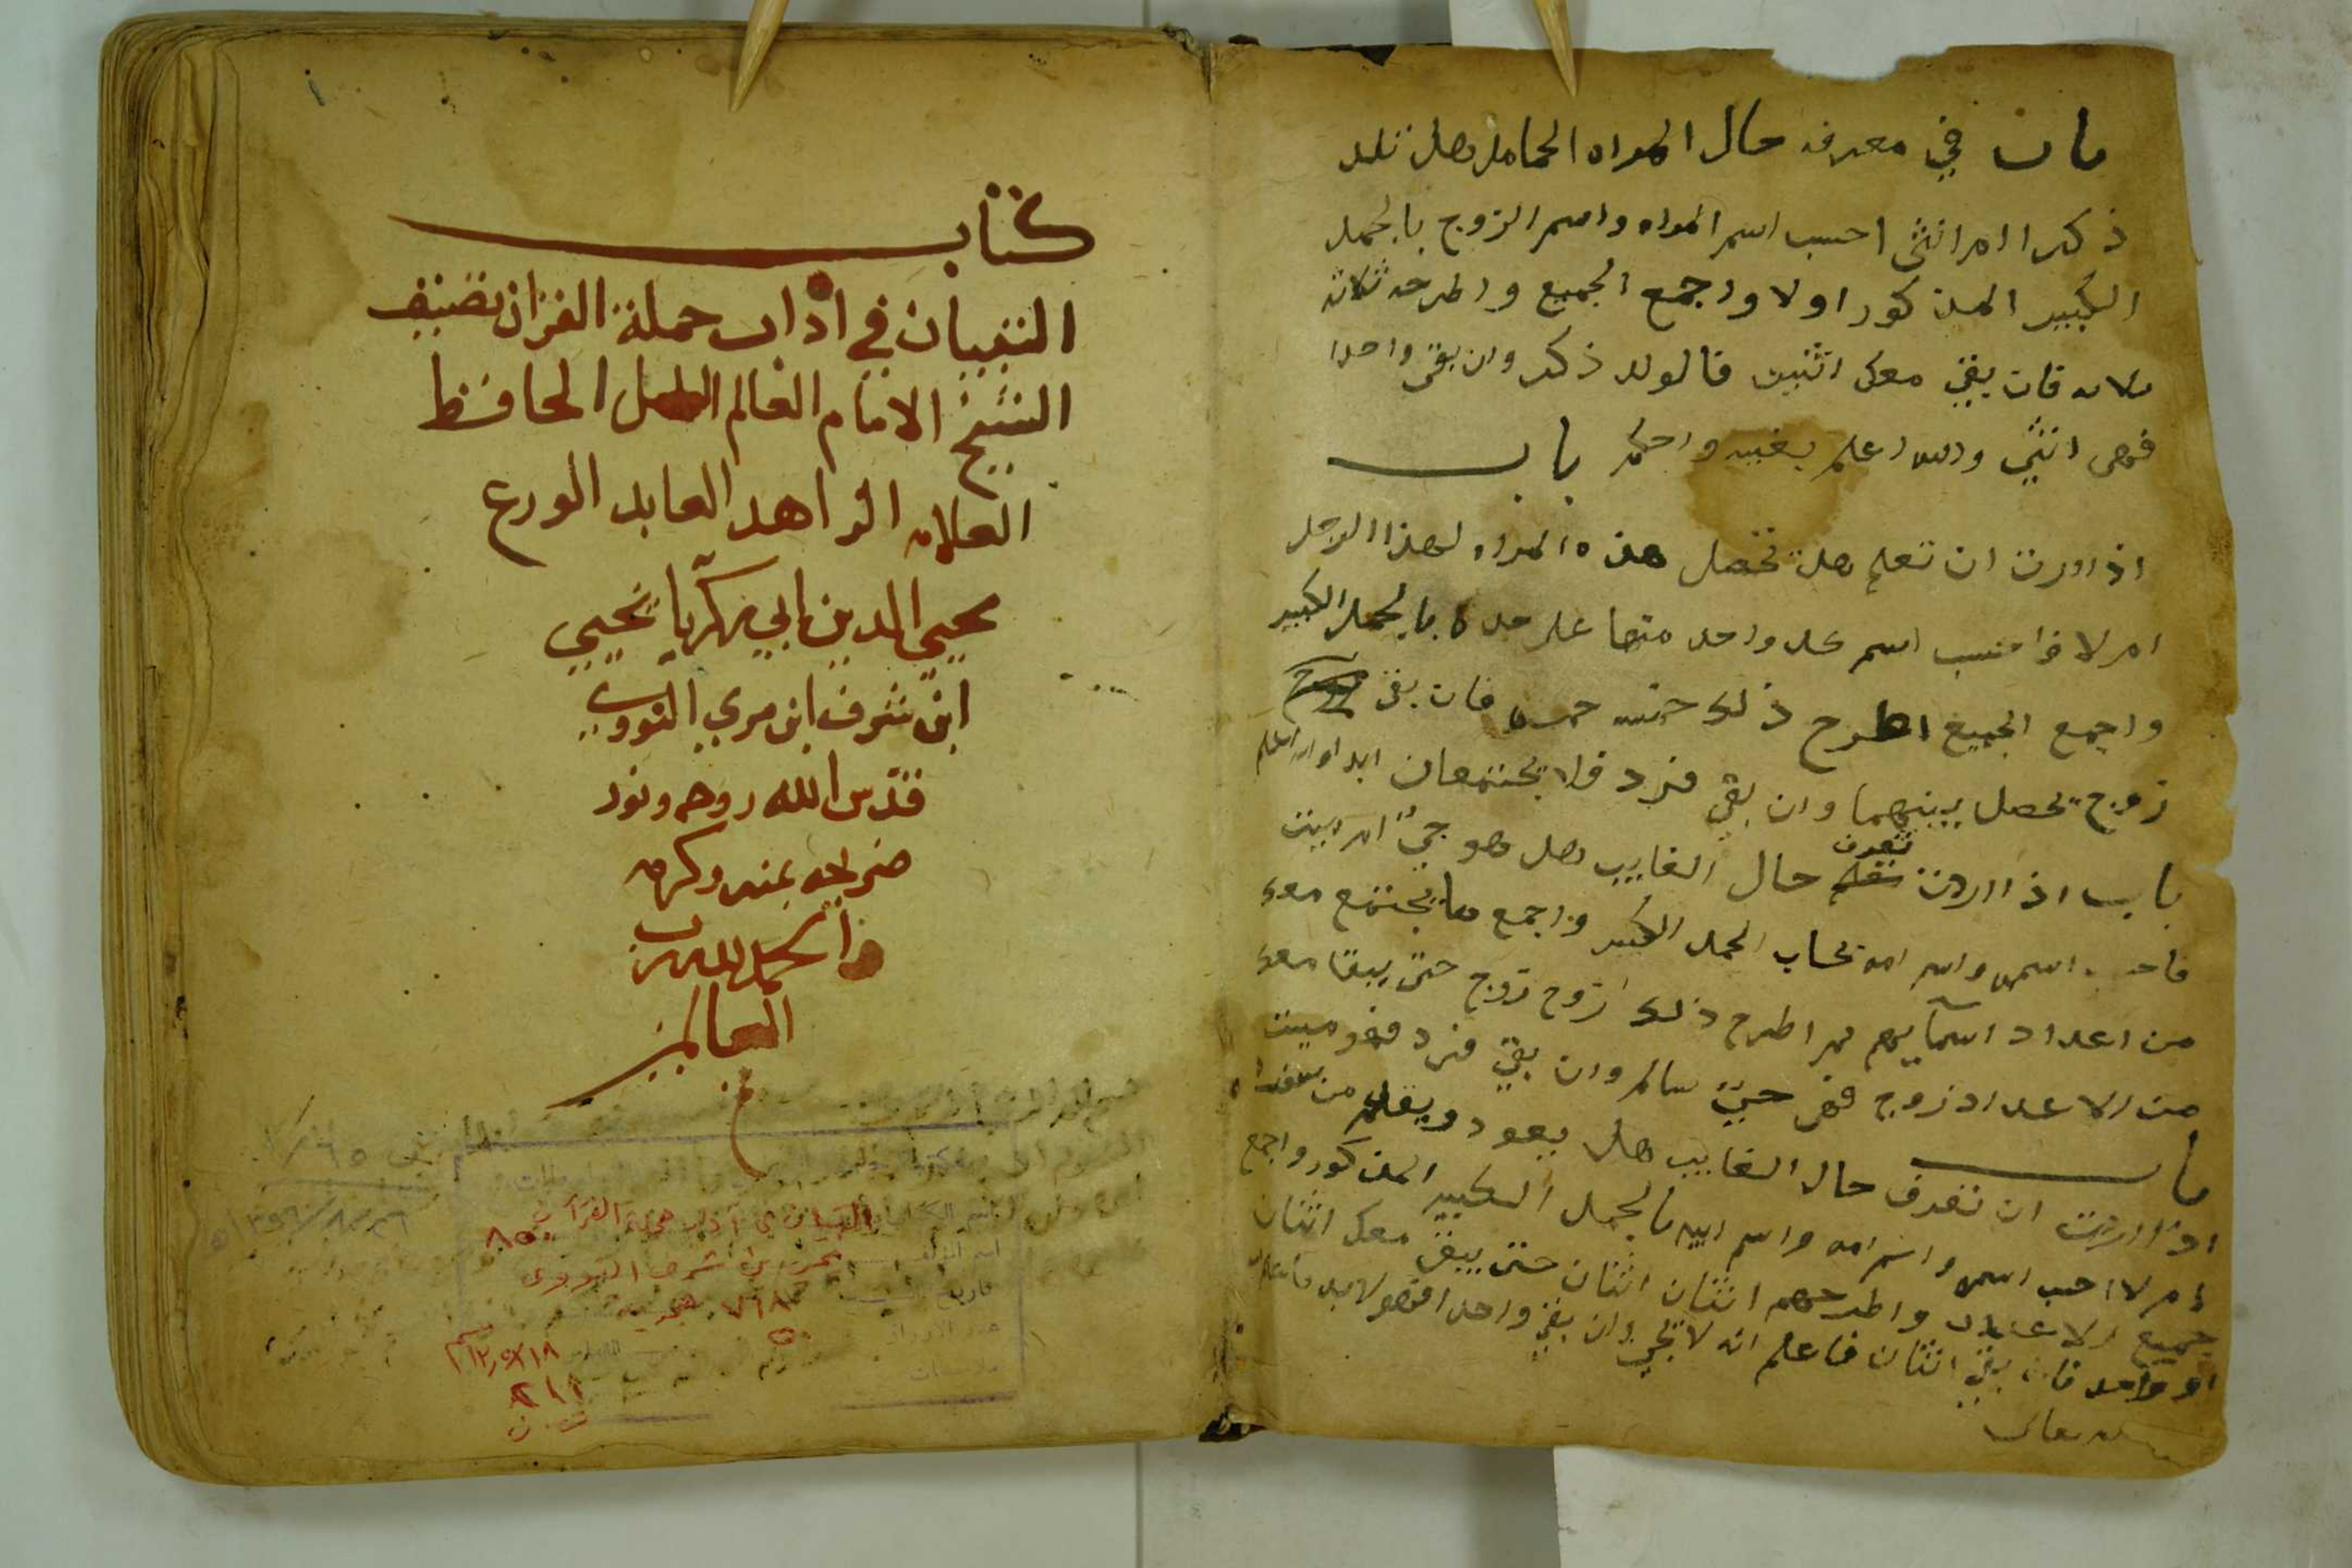 باب في معرفه حال المراه الحامل هل تلد
ذكرا ام انثى احسب اسم المراه واسم الزوج بالجمل
الكبير المذكور اولا واجمع الجميع واطرحه ثلاثه
ثلاثه فان بقي معك اثنين فالولد ذكر وان بقي واحدا
فهي انثى والله اعلم بغيبه واحكم باب
اذا اردت ان تعلم هل تحصل هذه المراه لهذا الرجل
ام لا فاحسب اسم كل واحد منهما على حده بالجمل الكبير
واجمع الجميع اطرح ذلك خمسه خمسه فان بقي
زوج يحصل بينهما وان بقي فرد فلا يجتمعان ابدا والله اعلم
باب اذا اردت تعرف حال الغايب هل هو حيّ ام ميت
فاحسب اسمه واسم امه بحساب الجمل الكبير واجمع ما يجتمع معك
من اعداد اسمآيهم ثم اطرح ذلك زوج زوج حتى يبقا معك
من الاعداد زوج فهو حيّ سالم وان بقي فرد فهو ميت
باب
اذا اردت ان تعرف حال الغايب هل يعود ويقدم من سفره
ام لا احسب اسمه واسم امه واسم ابيه بالجمل الكبير المذكور واجمع
جميع الاعداد واطرحهم اثنان اثنان حتى يبقى معك اثنان
او واحد فان بقي اثنان فاعلم انه لا يجي وان بقي واحدا فهو لابد
كتاب
التبيان في اداب حملة القران تصنيف
الشيخ الامام العالم الحافظ
العلامه الزاهد العابد الورع
محيي الدين ابي زكريا يحيي
ابن شرف ابن مري النووي
قدس الله روحه ونور
ضريحه بمنه وكرمه
والحمد لله رب
العالمين
التبيان في آداب حملة القرآن
يحيى بن شرف النووي
٧٦٨ هجرية